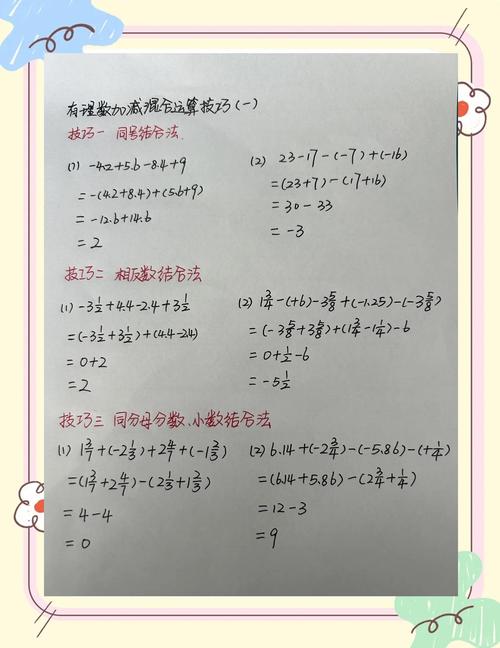 有理数加减混合运算技巧(一)
技巧一 同号结合法.
(1) -4.2+5.6-8.4+9
=-(4.2+8.4)+(5.6+9)
=-12.6+14.6
=2
(2) 23-17-(-7)+(-16)
=(23+7)-(17+16)
=30-33
=-3
技巧二 相反数结合法
(1) -3 1/2+4.4-2.4+3 1/2
=(-3 1/2+3 1/2)+(4.4-2.4)
=0+2
=2
(2) 1 3/4-(+6)-3 5/8+(-1.25)-(-3 5/8)
=(-3 5/8+3 5/8)+(1 3/4-1 1/4)-6
=0+1/2-6
=-5 1/2
技巧三 同分母分数、小数结合法
(1) 1 3/7+(-2 1/3)+2 4/7+(-1 2/3)
=(1 3/7+2 4/7)-(2 1/3+1 2/3)
=4-4
=0
(2) 6.14+(-2 3/4)-(-5.86)-(+1/4)
=(6.14+5.86)-(2 3/4+1/4)
=12-3
=9